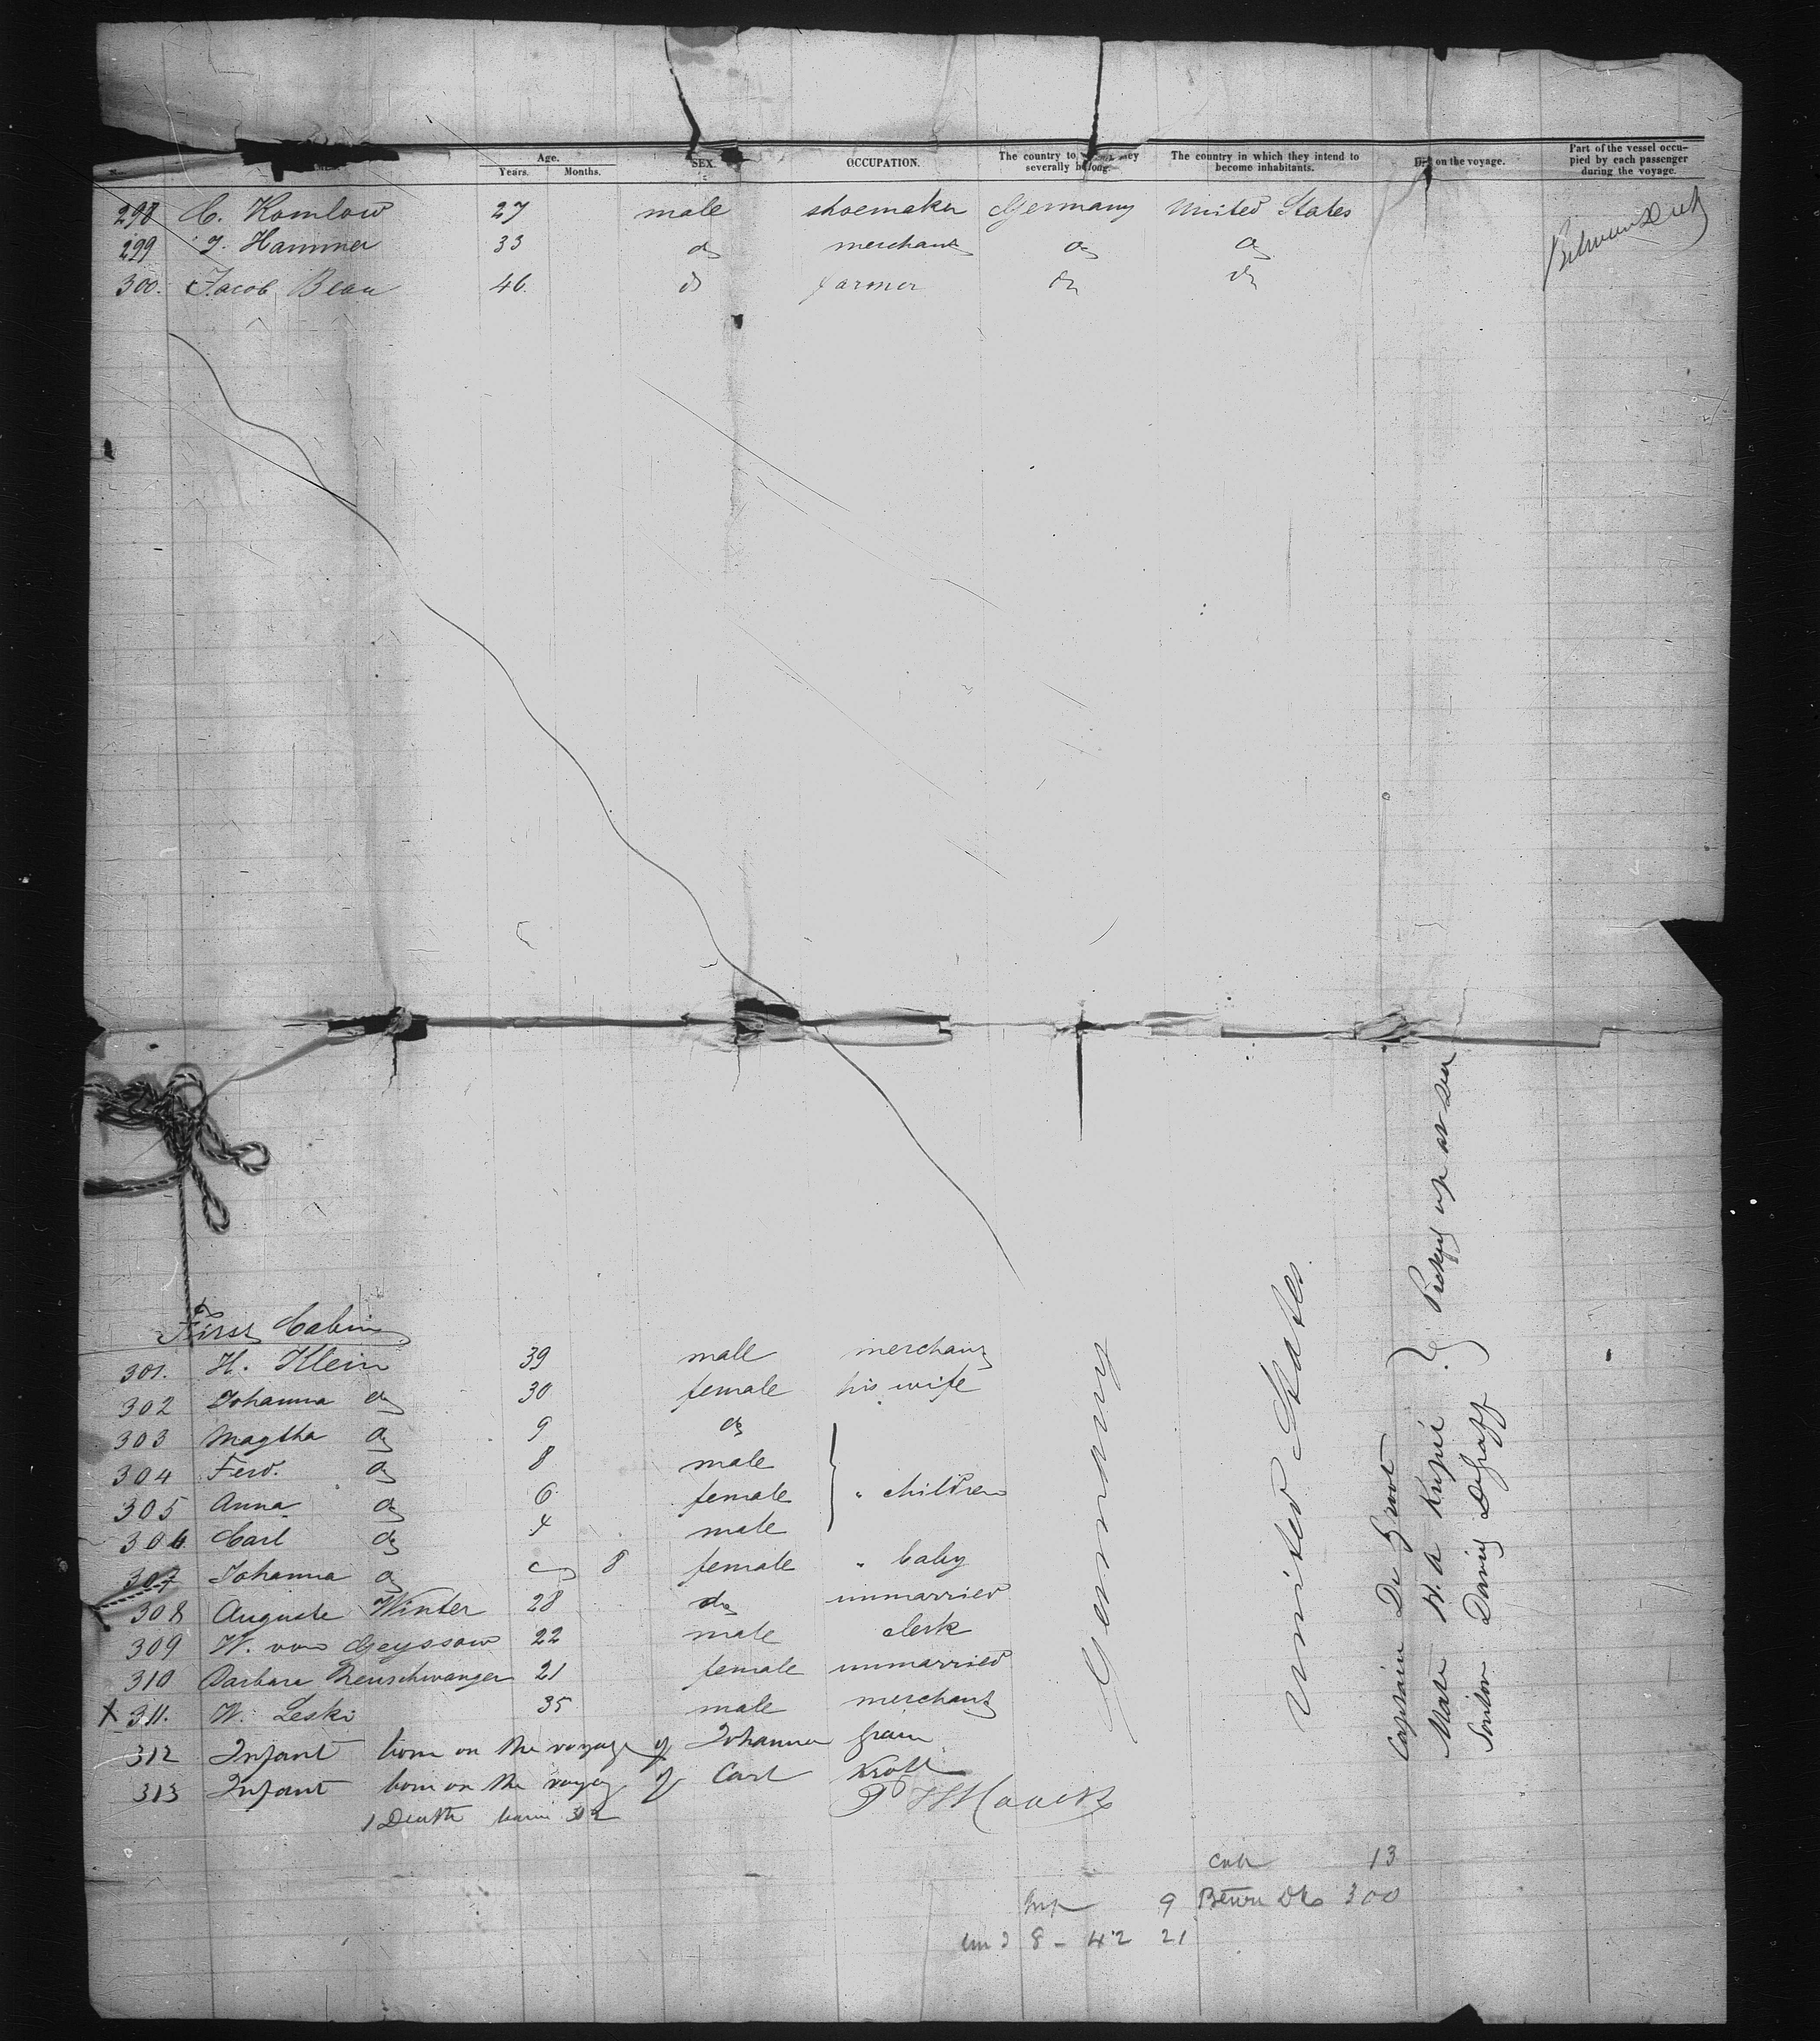 Age.
Years. Months. SEX. OCCUPATION. The country to they severally belong. The country in which they intend to become inhabitants. on the voyage. Part of the vessel occupied by each passenger during the voyage.
298 C. Komlow 27 male shoemaker Germany United States
299 J. Hammer 33 do merchant do do
300. Jacob Beau 46. do farmer do do
Between Deck
First Cabin
301. H. Klein 39 male merchant
302 Johanna do 30 female his wife
303 Magtha do 9 do
304 Ferd. do 8 male
305 Anna do 6 female " children
306. Carl do 4 male
307 Johanna do 8 female " baby
308 Auguste Winter 28 do unmarried
309 W. von Geyssow 22 male clerk
310 Barbara Neuschwanger 21 female unmarried
X 311. W. Leski 35 male merchant
312 Infant born on the voyage of Johanna
313 Infant born on the voyage of Carl Kroll
1 Death
Germany
United States.
Captain De Groot
Mate H. A
David
Picked up at sea
Cab 13
9 Betwn Dks 300
8 - 42 21